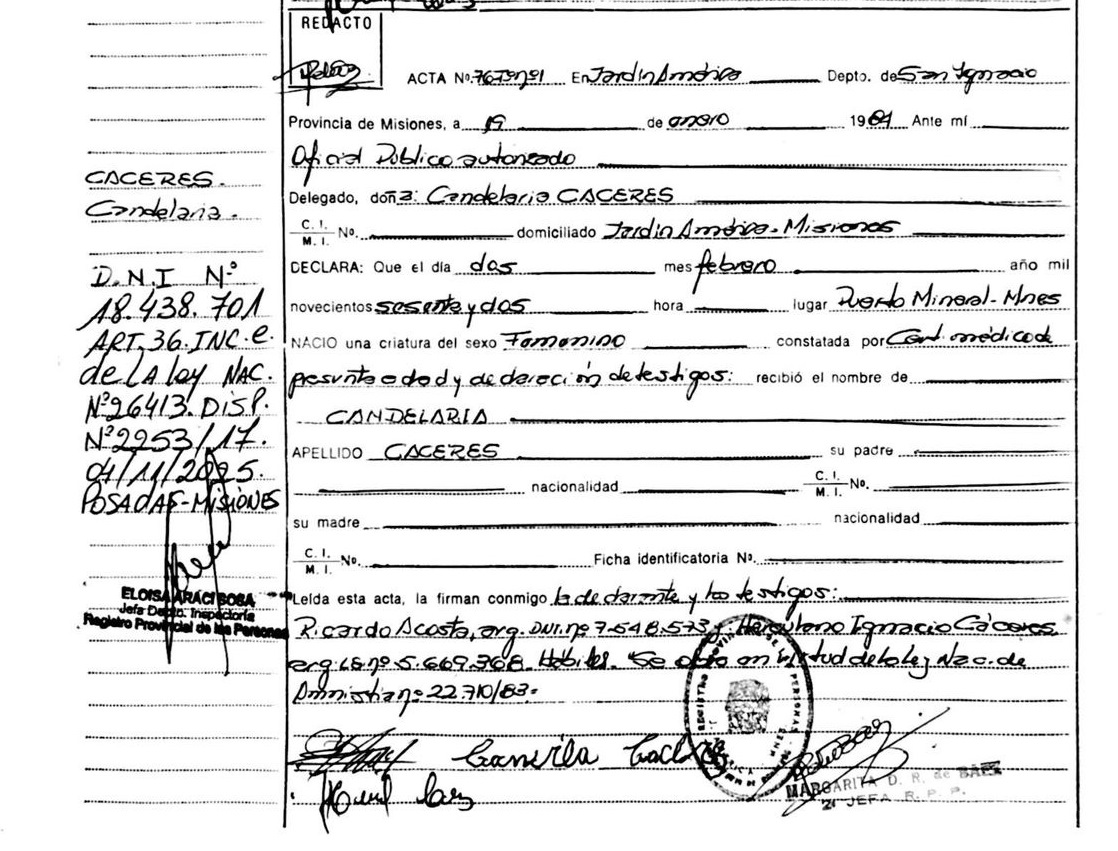 REDACTO
ACTA Nº 767 Tº nº1 En Jardin América Depto. de San Ignacio
Provincia de Misiones, a 19 de enero 1984 Ante mí
Oficial Público autorizado
Delegado, doña: Candelaria CACERES
C. I. / M. I. Nº. domiciliado Jardin América - Misiones
DECLARA: Que el día dos mes febrero año mil
novecientos sesenta y dos hora lugar Puerto Mineral - Mnes
NACIO una criatura del sexo Femenino constatada por Cert. médico de
presunta edad y declaración de testigos: recibió el nombre de
CANDELARIA
APELLIDO CACERES su padre
nacionalidad C. I. / M. I. Nº.
su madre nacionalidad
C. I. / M. I. Nº. Ficha identificatoria Nº.
Leída esta acta, la firman conmigo la declarante y los testigos:
Ricardo Acosta, arg. DNI. nº 7.548.573, Herculano Ignacio Cáceres
arg. LE nº 5.669.368. Hábiles. Se labra en virtud de la Ley Nac. de
Amnistia nº 22.710/83.
MARGARITA D. R. de BAEZ
JEFA R. P. P.
CACERES.
Candelaria.
D.N.I Nº
18.438.701
ART. 36. INC. e.
de LA ley NAC.
Nº 26413. DISP.
Nº 2253/17.
04/11/2025.
POSADAS - MISIONES
ELOISA ARACI SOSA
Jefa Depto. Inspectoria
Registro Provincial de las Personas